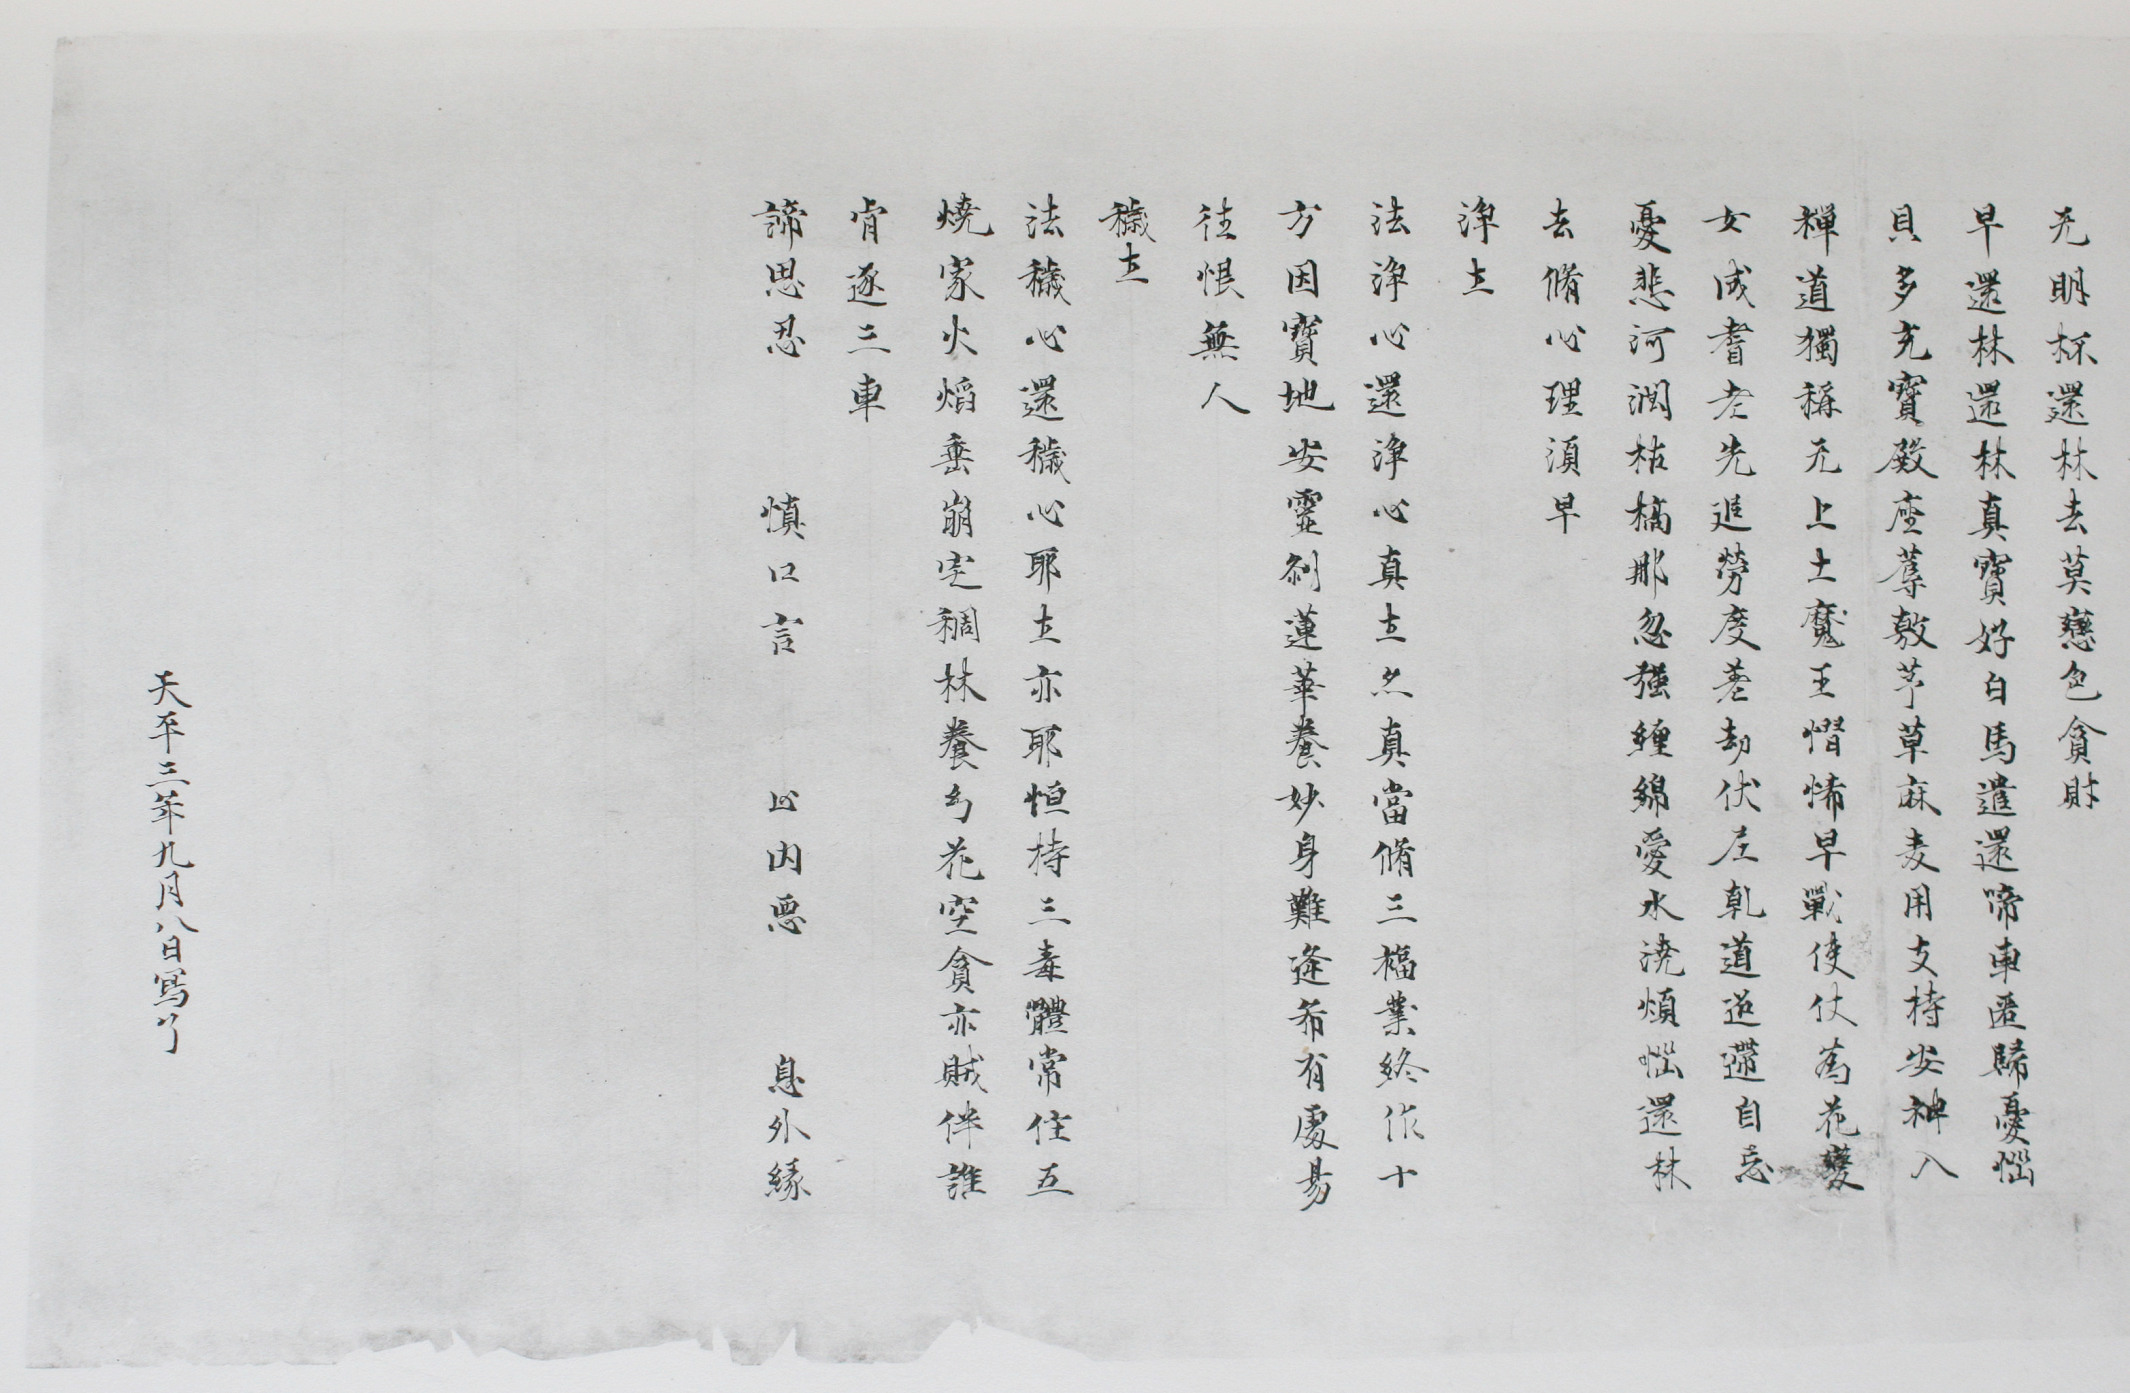 无明杯還林去莫戀色貪財
早還林還林真寶好白馬遣還啼車匿歸憂惱
貝多充寶殿座蓐敷芓草麻麦用支持安神入
禅道獨稱无上士魔王慴怖早戰使仗為花變
女成耆老先追勞度差劫伏尼乹道逆還自忘
憂悲河潤枯槁那忽强纏綿愛水澆煩惱還林
去脩心理須早
浄土
法浄心還浄心真土亦真當脩三福業終作十
方因寶地安靈剎蓮華養妙身難逢希有處易
往恨無人
穢土
法穢心還穢心耶土亦耶恒持三毒體常住五
燒家火焰垂崩宅稠林養幻花空貪亦賊伴誰
肯逐三車
諦思忍 慎口言 止内惡 息外緣
天平三年九月八日寫了